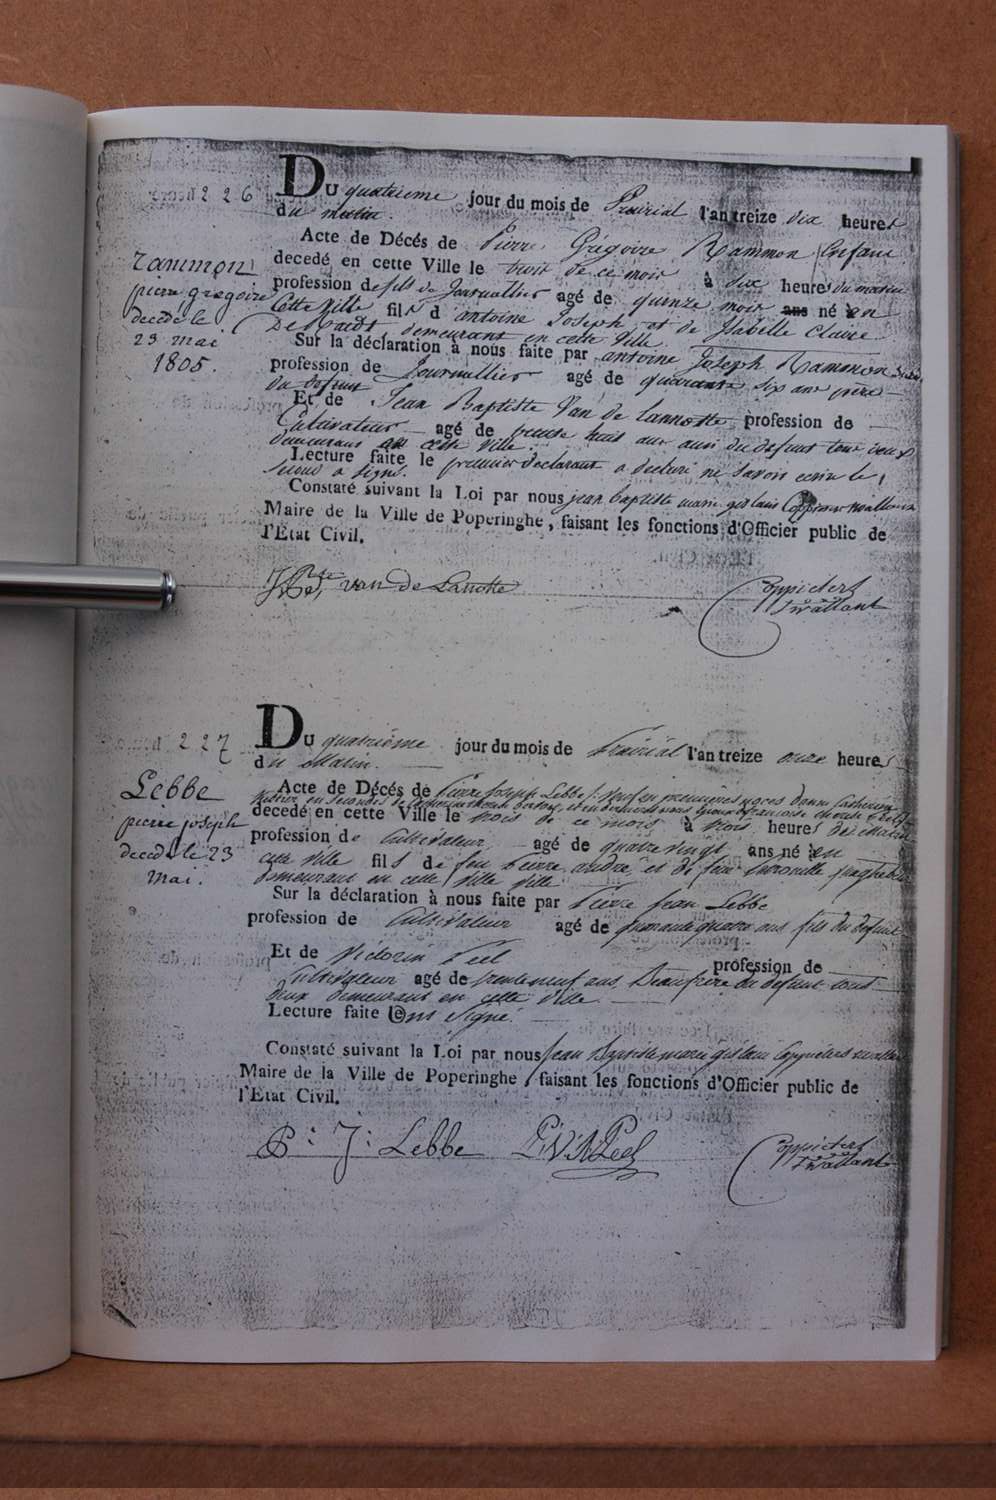 226
Du quatrieme jour du mois de Prairial l'an treize dix heures
du matin.
Rammon
pierre gregoire
decede le
23 mai
1805.
Acte de Décés de Pierre Grégoire Rammon Enfant
decedé en cette Ville le trois de ce mois à dix heures du matin
profession de fils de Journallier agé de quinze mois ans né en
Cette Ville fils d'antoine Joseph et de Isabelle Claire
demeurant en cette Ville
Sur la déclaration à nous faite par antoine Joseph Rammon
profession de Journallier agé de quarante six ans père
du defunt
Et de Jean Baptiste Van de Lannotte profession de
Cultivateur agé de trente huit ans ami du defunt tous deux
demeurans en cette Ville.
Lecture faite le premier declarant a declaré ne savoir ecrire le
second a signé.
Constaté suivant la Loi par nous jean baptiste marie gislain
Maire de la Ville de Poperinghe, faisant les fonctions d'Officier public de
l'Etat Civil.
J Bte van de Lanotte
227
Du quatrième jour du mois de Prairial l'an treize onze heures
du Matin.
Lebbe
pierre joseph
decede le 23
mai.
Acte de Décés de Pierre Joseph Lebbe
decedé en cette Ville le trois de ce mois à trois heures du matin
profession de Cultivateur agé de quatre vingt ans né en
cette ville fils de feu Pierre andré et de feue
demeurant en cette Ville
Sur la déclaration à nous faite par Pierre Jean Lebbe
profession de Cultivateur agé de ans fils du defunt
Et de Victorin Peel profession de
Cultivateur agé de trente neuf ans Beaufrere du defunt tous
deux demeurant en cette ville
Lecture faite Ont Signé.
Constaté suivant la Loi par nous Jean Baptiste marie gislain
Maire de la Ville de Poperinghe, faisant les fonctions d'Officier public de
l'Etat Civil.
P: J: Lebbe